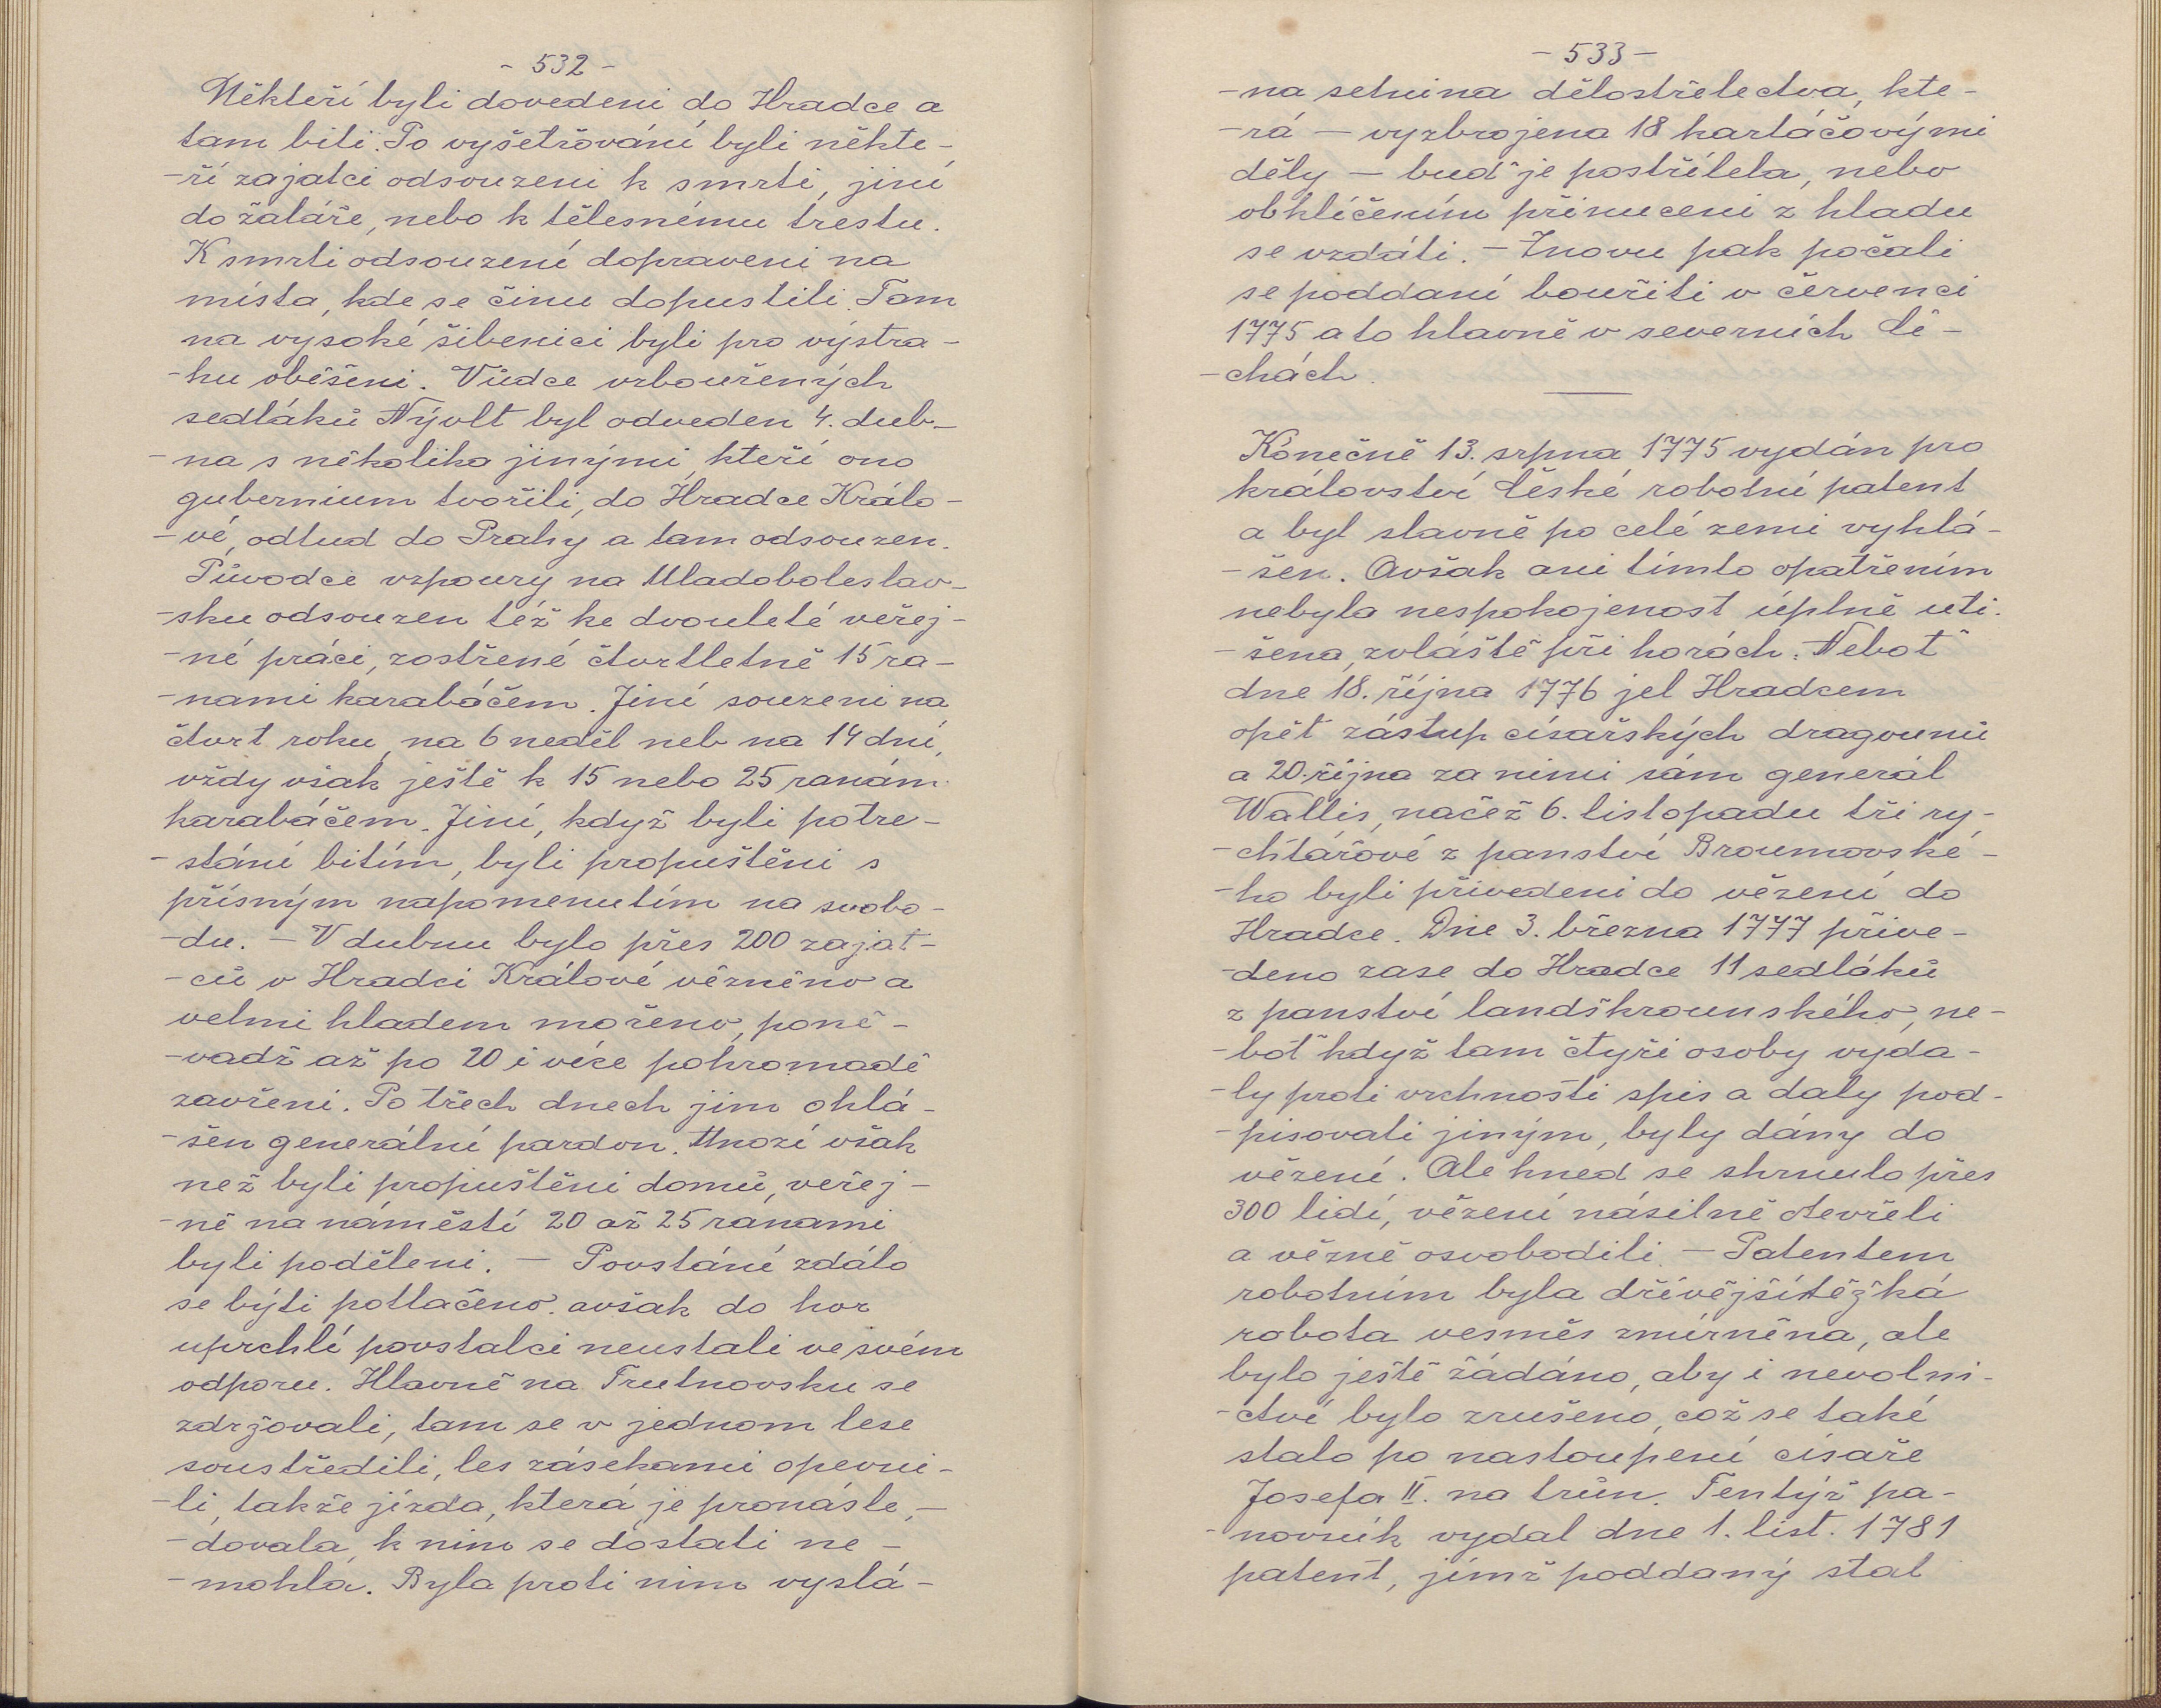 - 532 -
Někteří byli dovedeni do Hradce a
tam biti. Po vyšetřování byli někte-
-ří zajatci odsouzeni k smrti, jiní
do žaláře, nebo k tělesnému trestu.
K smrti odsouzení dopraveni na
místa, kde se činu dopustili. Tam
na vysoké šibenici byli pro výstra-
-hu oběšeni. Vůdce vzbouřených
sedláků Nývlt byl odveden 4. dub-
-na s několika jinými, kteří ono
gubernium tvořili, do Hradce Králo-
-vé, odtud do Prahy a tam odsouzen.
Původce vzpoury na Mladoboleslav-
-sku odsouzen též ke dvouleté veřej-
-né práci, zostřené čtvrtletně 15 ra-
-nami karabáčem. Jiní souzeni na
čtvrt roku, na 6 neděl neb na 14 dní,
vždy však ještě k 15 nebo 25 ranám
karabáčem. Jiní, když byli potre-
-stáni bitím, byli propuštěni s
přísným napomenutím na svobo-
-du. - V dubnu bylo přes 200 zajat-
-ců v Hradci Králové vězněno a
velmi hladem mořeno, poně-
-vadž až po 20 i více pohromadě
zavřeni. Po třech dnech jim ohlá-
-šen generální pardon. Mnozí však
než byli propuštěni domů, veřej-
-ně na náměstí 20 až 25 ranami
byli poděleni. — Povstání zdálo
se býti potlačeno. avšak do hor
uprchlí povstalci neustali ve svém
odporu. Hlavně na Trutnovsku se
zdržovali, tam se v jednom lese
soustředili, les zásekami opevni-
-li, takže jízda, která je pronásle,-
-dovala, k nim se dostati ne-
-mohla. Byla proti nim vyslá-
- 533 -
-na setnina dělostřelectva, kte-
-rá — vyzbrojena 18 kartáčovými
děly — buď je postřílela, nebo
obklíčením přinuceni z hladu
se vzdáti. - Znovu pak počali
se poddaní bouřiti v červenci
1775 a to hlavně v severních Če-
-chách.
Konečně 13. srpna 1775 vydán pro
království české robotní patent
a byl slavně po celé zemi vyhlá-
-šen. Avšak ani tímto opatřením
nebyla nespokojenost úplně uti-
-šena, zvláště při horách. Neboť
dne 18. října 1776 jel Hradcem
opět zástup císařských dragounů
a 20. října za nimi sám generál
Wallis, načež 6. listopadu tři ry-
-chtářové z panství Broumovské-
-ho byli přivedeni do vězení do
Hradce. Dne 3. března 1777 přive-
-deno zase do Hradce 11 sedláků
z panství landškrounského, ne-
-boť když tam čtyři osoby vyda-
-ly proti vrchnosti spis a daly pod-
-pisovati jiným, byly dány do
vězení. Ale hned se shrnulo přes
300 lidí, vězení násilně otevřeli
a vězně osvobodili. - Patentem
robotním byla dřívější těžká
robota vesměs zmírněna, ale
bylo ještě žádáno, aby i nevolni-
-ctví bylo zrušeno, což se také
stalo po nastoupení císaře
Josefa II. na trůn. Tentýž pa-
-novník vydal dne 1. list. 1781
patent, jímž poddaný stal